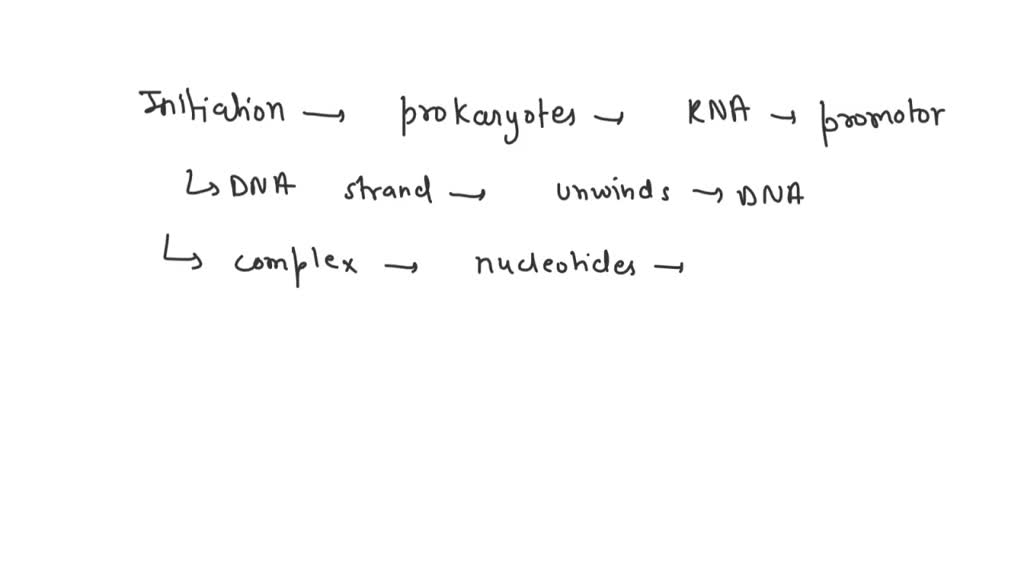 Initiation → prokaryotes → RNA → promotor
↳ DNA strand → unwinds → DNA
↳ complex → nucleotides →